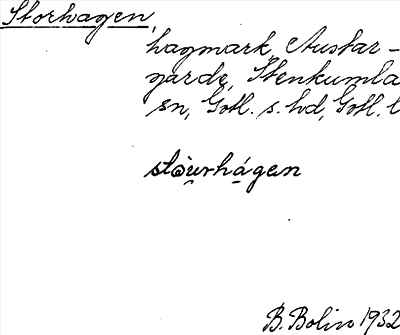 Storhagen,
hagmark, Austar-
gårde, Stenkumla
sn, Gotl. s. hd, Gotl. l
stòu̯rhá̤gen
B. Bolin 1932